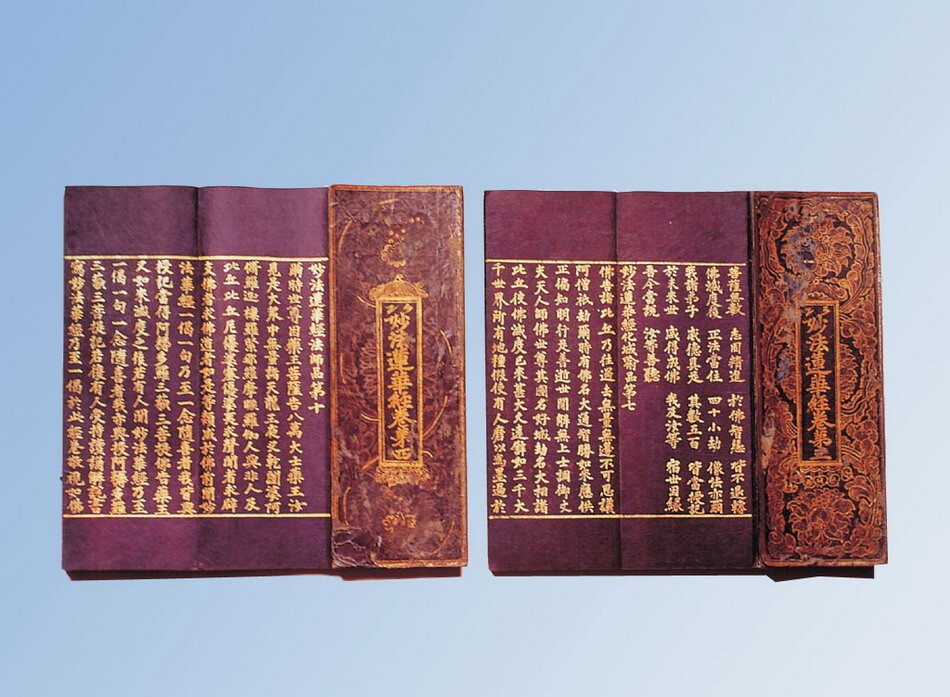 妙法蓮華經卷第三
菩薩無數 志固精進 於佛智慧 皆不退轉
佛滅度後 正法當住 四十小劫 像法亦爾
我諸弟子 威德具足 其數五百 皆當授記
於未來世 咸得成佛 我及汝等 宿世因緣
吾今當說 汝等善聽
妙法蓮華經化城喻品第七
佛告諸比丘乃往過去無量無邊不可思議
阿僧祇劫爾時有佛名大通智勝如來應供
正徧知明行足善逝世間解無上士調御丈
夫天人師佛世尊其國名好城劫名大相諸
比丘彼佛滅度已來甚大久遠譬如三千大
千世界所有地種假使有人磨以為墨過於
妙法蓮華經卷第四
妙法蓮華經法師品第十
爾時世尊因藥王菩薩告八萬大士藥王汝
見是大衆中無量諸天龍王夜叉乾闥婆阿
修羅迦樓羅緊那羅摩睺羅伽人與非人及
比丘比丘尼優婆塞優婆夷求聲聞者求辟
支佛者求佛道者如是等類咸於佛前聞妙
法華經一偈一句乃至一念隨喜者我皆與
授記當得阿耨多羅三藐三菩提佛告藥王
又如來滅度之後若有人聞妙法華經乃至
一偈一句一念隨喜者我亦與授阿耨多羅
三藐三菩提記若復有人受持讀誦解說書
寫妙法華經乃至一偈於此經卷敬視如佛